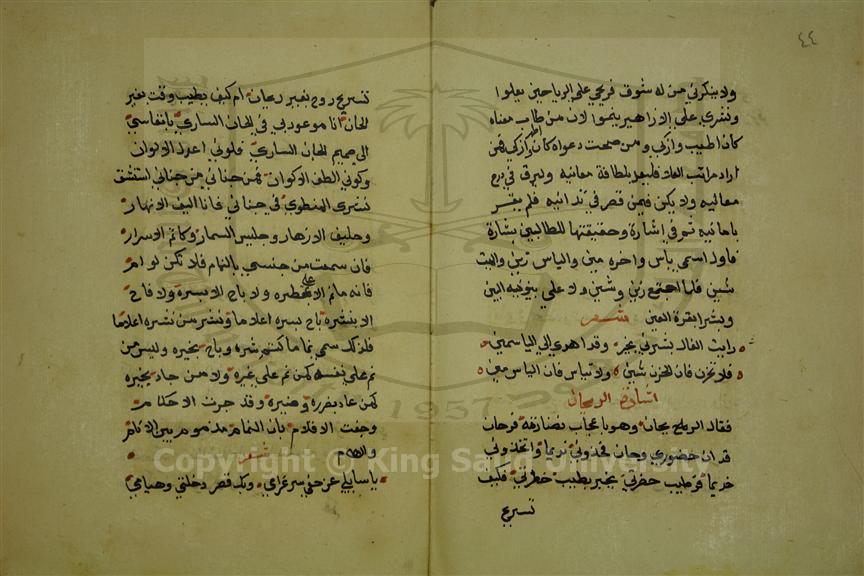 ٤٤
ولا ينكرني من له شوق فريحي على الرياحين يعلوا
ونشري على الازاهير ينموا لان من طاب معناه
كان اطيب وازكى ومن صحت دعواه كان اطهر وازكى فمن
اراد مراتب العلا فليعد بلطافة معانيه وليرق في درج
معاليه ولا يكن فيمن قصر في تدانيه فلم يفسر
بامانيه ثم في اشارة وحقيقتها للطالبين بشارة
فاول اسمي ياس واخره مين والياس زين والمين
شين فلما اجتمع زين وشين دلا على بينونية البين
وبشرا بقرة العين شعر
رايت الفال بشرني بخير وقد اهدى الي الياسمين
فلا تحزن فان الحزن شين ولا تياس فان الياس مين
اشارة الريحان
فقال الريحان وهو باعجاب نضارته فرحان
قد ان حضوري وحان فخذوني نديما واتخذوني
خديما فطيب حضرتي يخبر بطيب خطرتي فكيف
تسريح
تسريح روح بغير ريحان ام كيف يطيب وقت بغير
الحان انا موعود بي في الجنان الساري بانفاسي
الى صميم الجنان الساري فلوني اعدل الالوان
وكوني الطف الاكوان فمن جناني من جناني استنشق
نشري المنطوي في جناني فانا اليف الانهار
وحليف الازهار وجليس السمار وكاتم الاسرار
فان سمعت من جنسي بالنمام فلا تكن لوام
فانه ما نم الا على عطره ولا باح الا بسره ولا فاح
الا بنشره باح بسره اعلاما ونشر من نشره اعلاما
فلذلك سمي نماما كتم شره وباح بخيره وليس من
نم على نفسه كمن نم على غيره ولا من جاد بخيره
كمن عاد بضره وضيره وقد جرت الاحكام
وجفت الاقلام بان النمام مذموم بين الانام
والسلام شعر
يا سايلي عن خفي سر غرامي ولك قصر دخلتي وهيامي
Copyright © King Saud University
1957